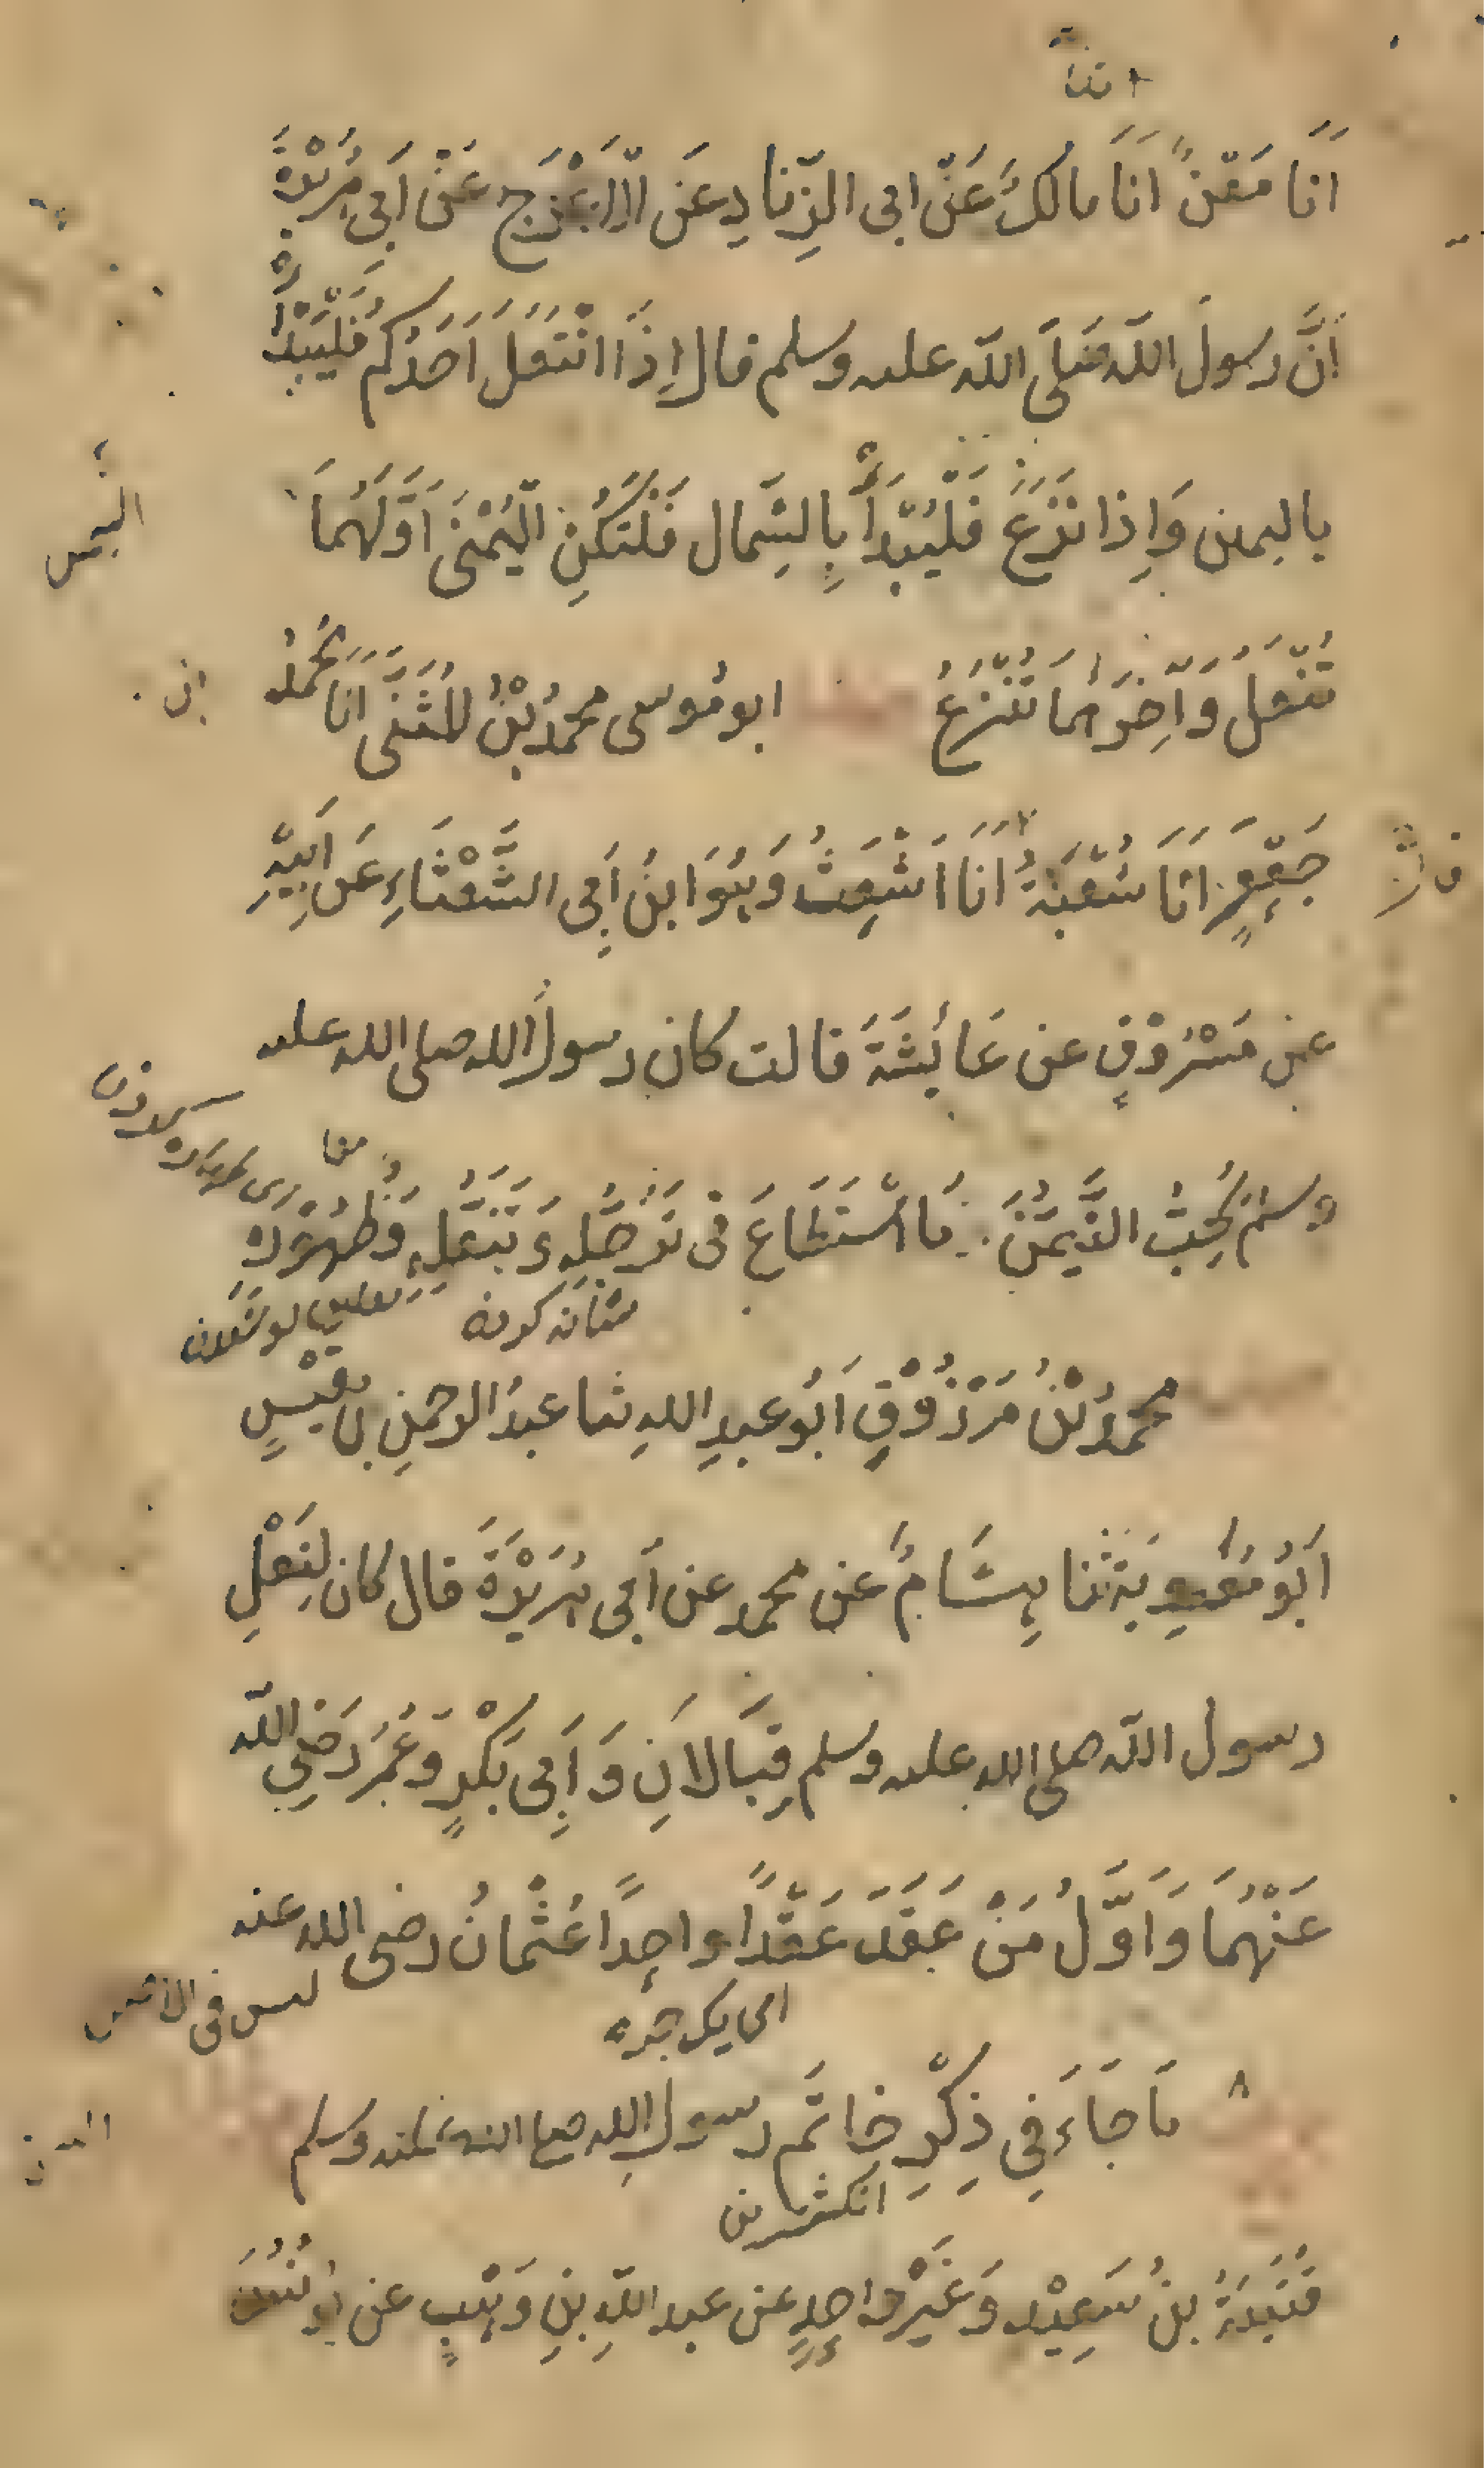 ثنا
اَنَا مَعْنٌ اَنَا مَالكٌ عَنْ ابى الزِّنادِ عَنِ الْاَعْرَجِ عَنْ اَبِى هُرَيْرَةَ
اَنَّ رسولَ اللّه صَلَّى اللّه عليه وسلم قال اِذَا انْتَعَلَ اَحَدُكم فَلْيَبْدَأْ
باليمين وَاِذا نَزَعَ فَلْيَبْدَأْ بِالشِّمال فَلْتَكُنِ الْيُمْنَى اَوَّلَهُمَا
تُنْعَلُ وَآخِرَهُمَا تُنْزَعُ ابو مُوسى محمدُ بْنُ الْمُثَنَّى اَنَا مُحَمَّدُ
ابن
قال
جَعْفَرٍ اَنَا شُعْبَةُ اَنَا اَشْعَثُ وَهُوَ ابنُ اَبِى الشَّعْثَاءِ عَنْ اَبِيْهِ
عن مَسْرُوْقٍ عن عَائِشَةَ قالت كان رسولُ الله صلى الله عليه
وسلم يُحِبُّ التَّيَمُّنَ مَا اسْتَطَاعَ فى تَرَجُّلِهِ وَتَنَعُّلِهِ وَطُهُوْرِهِ
شانه كردن
محمدُ بْنُ مَرْزُوْقٍ اَبُو عبدِ اللهِ ثنا عبدُ الرحمنِ بن قَيْسٍ
اَبُو مُعٰوِيَة ثنا هِشَامٌ عن محمد عن اَبِى هُرَيْرَةَ قال كان لِنَعْلِ
رسول اللّه صلى الله عليه وسلم قِبَالانِ وَ اَبِى بَكْرٍ وَعُمَرَ رَضِىَ اللّه
عَنْهُمَا وَ اَوَّلُ مَنْ عَقَدَ عَقْدًا واحِدًا عُثْمانُ رضى الله عنه
ليس فى الاصل
مَا جَاءَ فِى ذِكْرِ خاتَم رسولِ الله صلى الله عليه وسلم
قُتَيْبَةُ بنُ سَعِيْد وَغَيْرُ واحِدٍ عن عبد اللّهِ بنِ وَهْبٍ عن يُونُسَ